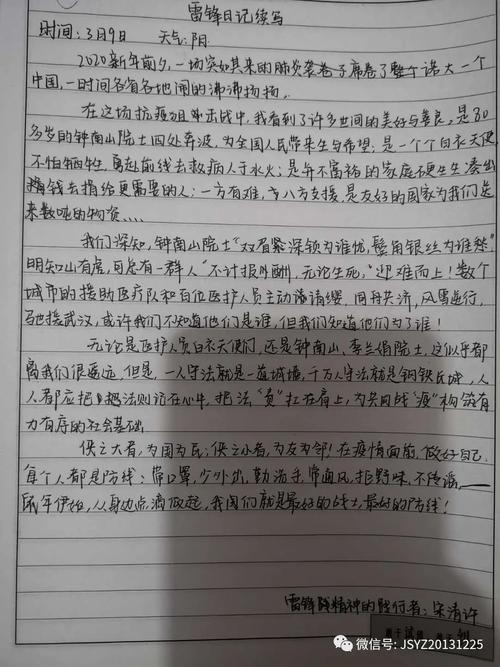 雷锋日记续写
时间:3月9日 天气:阴
2020新年前夕,一场突如其来的肺炎袭卷了席卷了整个诺大一个
中国,一时间各省各地闹的沸沸扬扬。
在这场抗疫阻击战中,我看到了许多世间的美好与善良,是80
多岁的钟南山院士四处奔波,为全国人民带来生与希望;是一个个白衣天使
不怕牺牲,勇赴前线去救病人于水火;是并不富裕的家庭硬生生凑出
钱去捐给更需要的人;一方有难,八方支援是友好的国家为我们送
来数吨的物资....
我们深知,钟南山院士"双眉紧深锁为谁忧,鬓角银丝为谁愁"
明知山有虎,可总有一群人"不计报酬,无论生死,"迎难而上!数个
城市的援助医疗队和百位医护人员主动请缨,同舟共济,风雪逆行,
驰援武汉,或许我们不知道他们是谁,但我们知道他们为了谁!
无论是医护人员白衣天使们,还是钟南山、李兰娟院士,这似乎都
离我们很遥远,但是,一人守法就是一道城墙,千万人守法就是钢铁长城,人
人都应把法则记在心中,把法"责"扛在肩上,为共同战"疫"构筑有
力有序的社会基础
侠之大者,为国为民;侠之小者,为友为邻!在疫情面前,做好自己
每个人都是防线:常口罩,少外出,勤洗手,常通风,拒野味,不传谣,
鼠年伊始,从身边点滴做起,我们就是最好的战士,最好的防线!
雷锋精神的践行者:宋清许
微信号:JSYZ20131225